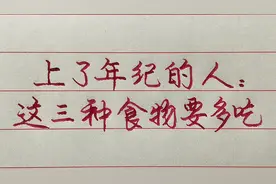 上了年纪的人：
这三种食物要多吃